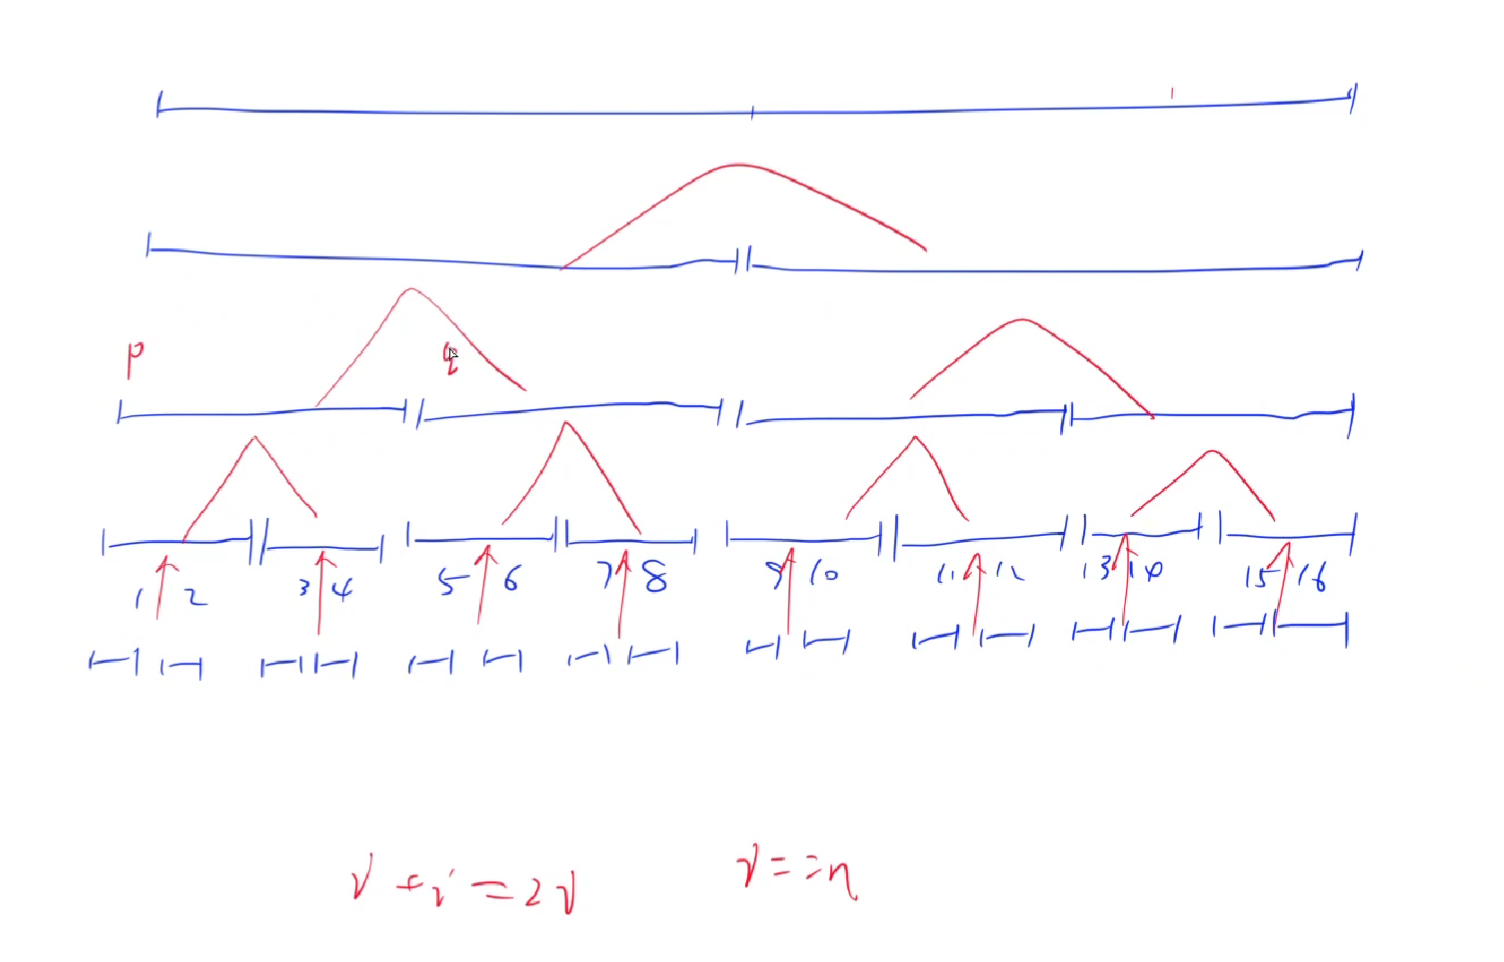 p q
1 2 3 4 5 6 7 8 9 10 11 12 13 14 15 16
r + r = 2r r = = n